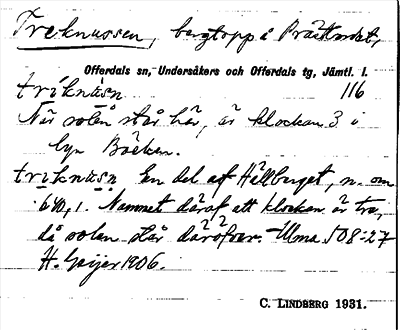 Treknussen, bergtopp å Prästlandet,
Offerdals sn, Undersåkers och Offerdals tg, Jämtl. l.
triknùsn 116
När solen står här, är klockan 3 i
byn Bäcken.
triknùsn En del af Hällberget, n. om
640, 1. Namnet däraf, att klockan är tre,
då solen står däröfver. Ulma 508:27
H. Geijer 1906.
C. LINDBERG 1931.